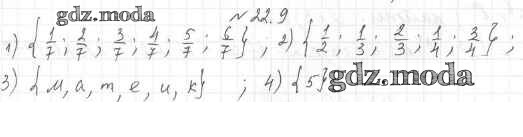 gdz.moda
№ 22.9
1) {1/7; 2/7; 3/7; 4/7; 5/7; 6/7}; 2) {1/2; 1/3; 2/3; 1/4; 3/4};
3) {м, а, т, е, и, к}; 4) {5}
gdz.moda